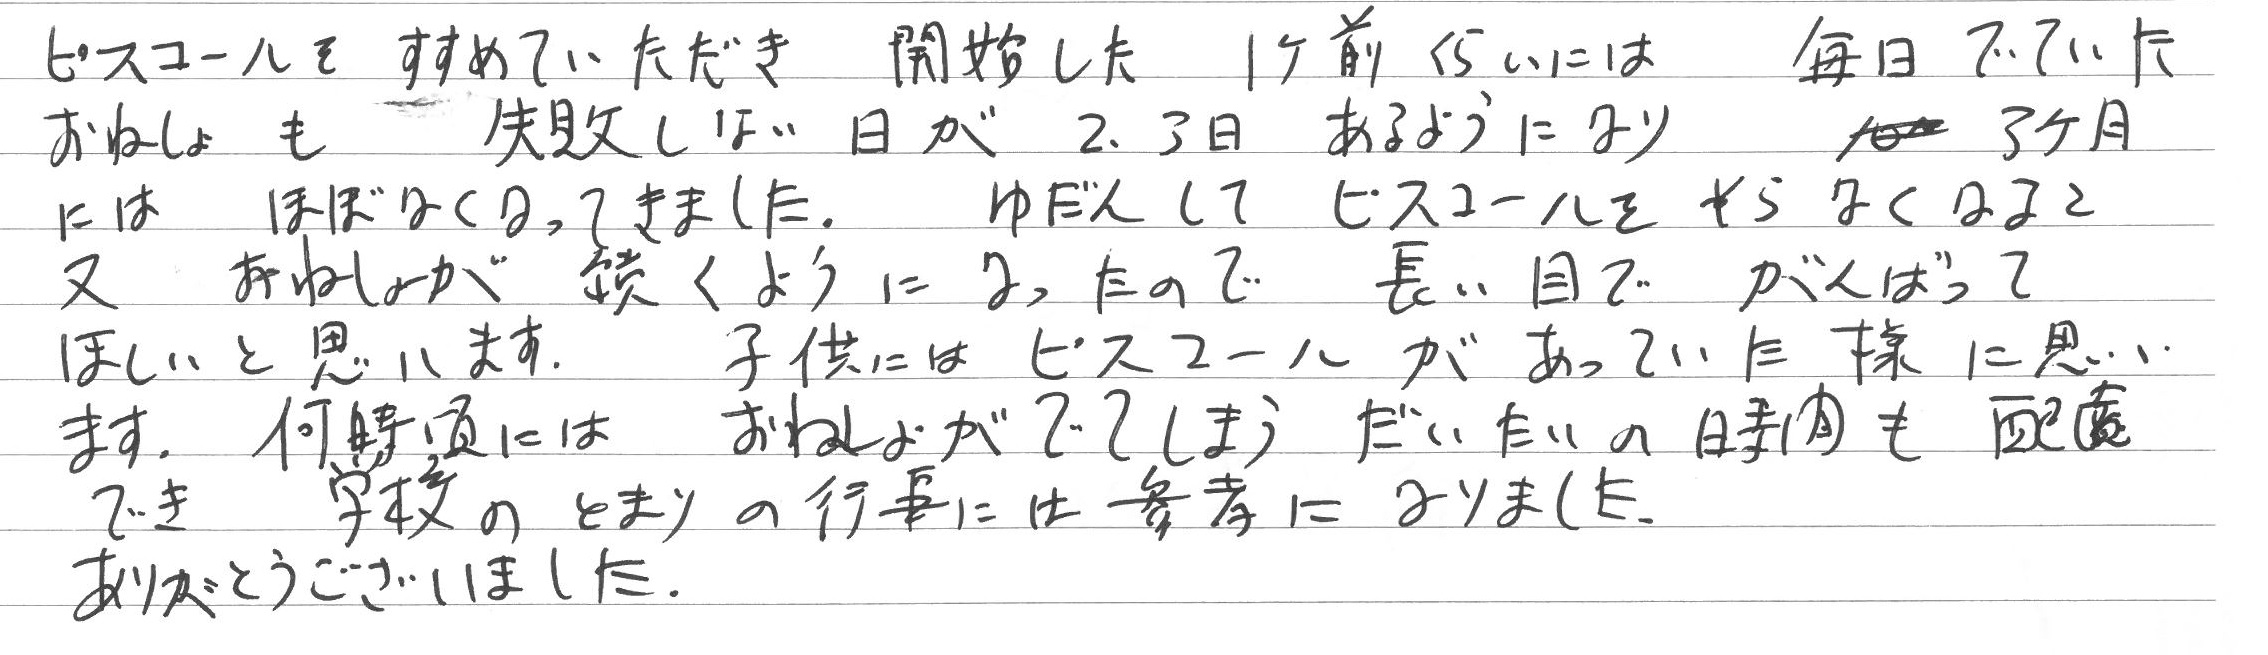 ピスコールを すすめていただき 開始した 1ケ前くらいには 毎日でていた
おねしょも 失敗しない日が 2、3日 あるようになり 3ケ月
には ほぼなくなってきました。 ゆだんして ピスコールをやらなくなると
又 おねしょが 続くようになったので 長い目で がんばって
ほしいと思います。 子供には ピスコールが あっていた様に思い
ます。 何時頃には おねしょがでてしまう だいたいの時間も 配慮
でき 学校のとまりの行事には参考になりました。
ありがとうございました。